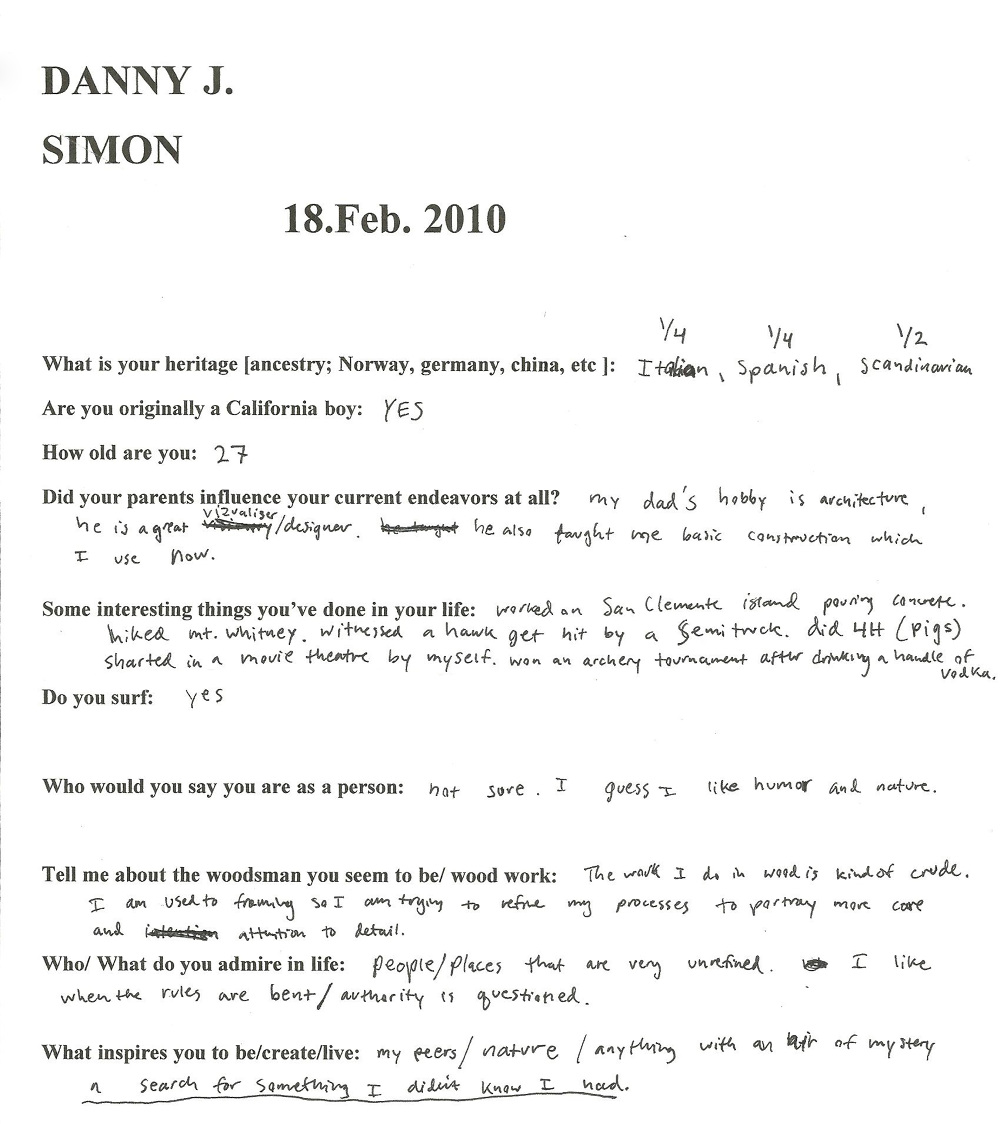 DANNY J.
SIMON
18.Feb. 2010
1/4 1/4 1/2
What is your heritage [ancestry; Norway, germany, china, etc ]: Italian, Spanish, Scandinavian
Are you originally a California boy: YES
How old are you: 27
Did your parents influence your current endeavors at all? my dad's hobby is architecture,
vizualiser
he is a great /designer. he taught he also taught me basic construction which
I use now.
Some interesting things you've done in your life: worked on San Clemente island pouring concrete.
hiked mt. whitney. witnessed a hawk get hit by a semi truck. did 4H (pigs)
sharted in a movie theatre by myself. won an archery tournament after drinking a handle of
vodka.
Do you surf: yes
Who would you say you are as a person: not sure. I guess I like humor and nature.
Tell me about the woodsman you seem to be/ wood work: The work I do in wood is kind of crude.
I am used to framing so I am trying to refine my processes to portray more care
and intention attention to detail.
Who/ What do you admire in life: people/places that are very unrefined. I like
when the rules are bent/authority is questioned.
What inspires you to be/create/live: my peers/nature/anything with an air of mystery
a search for something I didn't know I had.